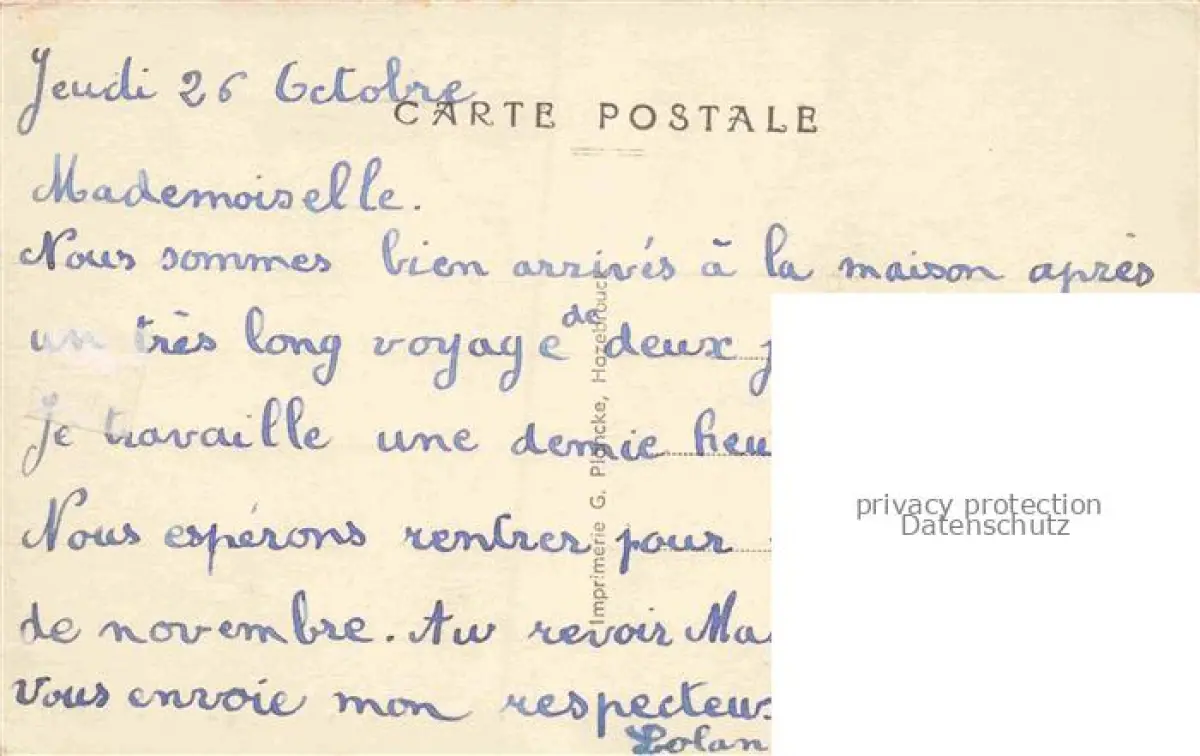 Jeudi 26 Octobre
CARTE POSTALE
Mademoiselle.
Nous sommes bien arrivés à la maison après
un très long voyage de deux
Je travaille une demie
Nous espérons rentrer pour
de novembre. Au revoir
vous envoie mon
Imprimerie G. Plancke, Hazebrouck
privacy protection
Datenschutz